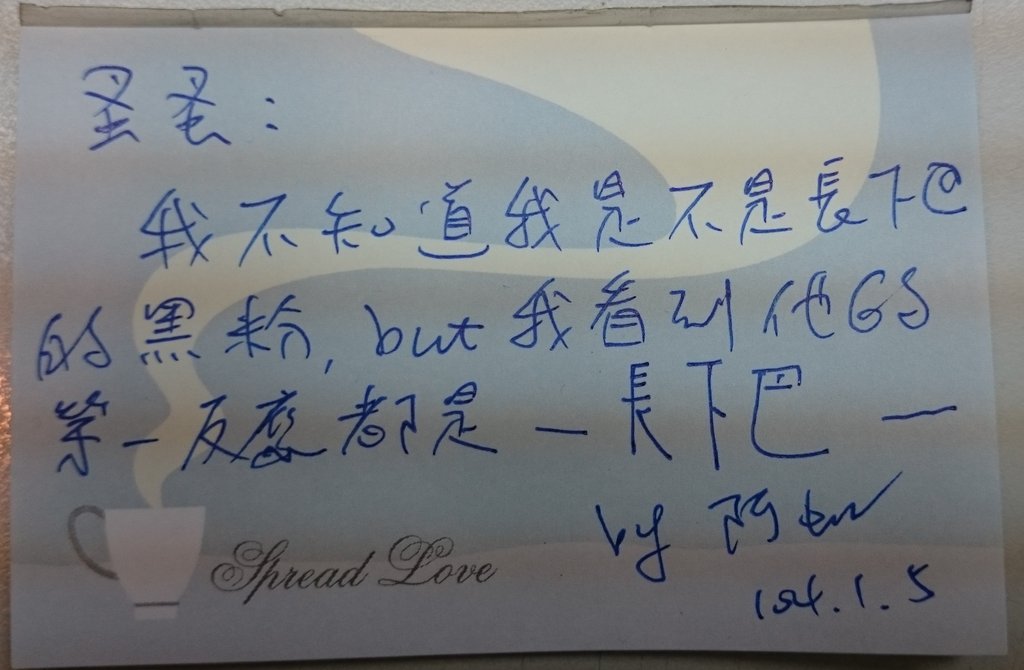 蚤蚤:
我不知道我是不是長下巴
的黑粉, but 我看到他GS
第一反應都是 — 長下巴 —
by 阿
Spread Love
104.1.5